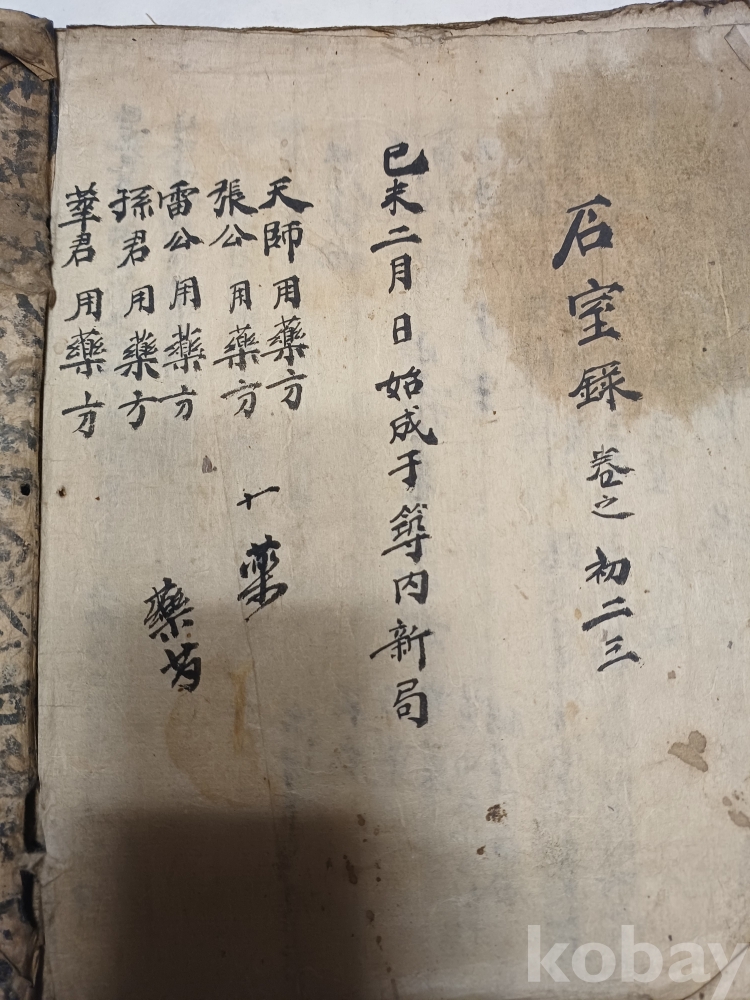 石室錄 卷之 初二三
己未二月日 始成于籌內新局
天師用藥方
張公用藥方
雷公用藥方
孫君用藥方
華君用藥方
藥
藥
kobay